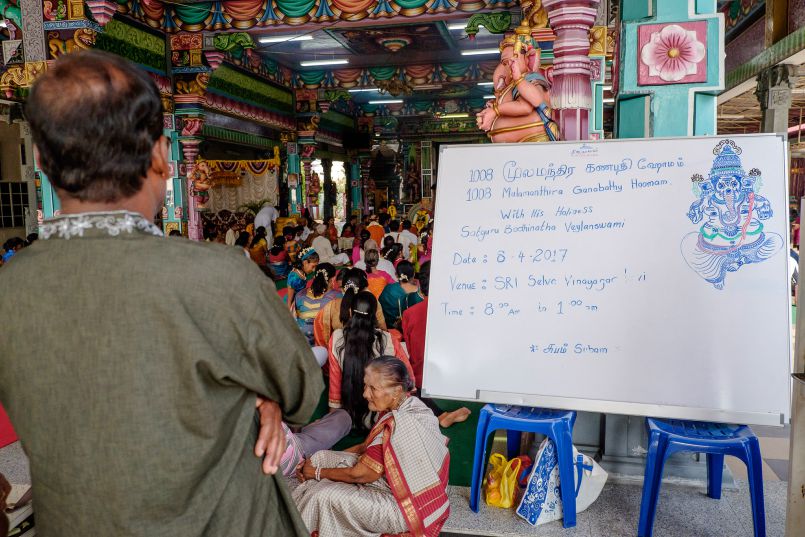 1008 மூலமந்திர கணபதி ஹோமம்
1008 Mulamanthira Ganabathy Hoomam
With His Holiness
Satguru Bodhinatha Veylanswami
Date : 8-4-2017
Venue : SRI Selva Vinayagar
Time : 8 00 Am to 1 00 Pm
* சுபம் Subam